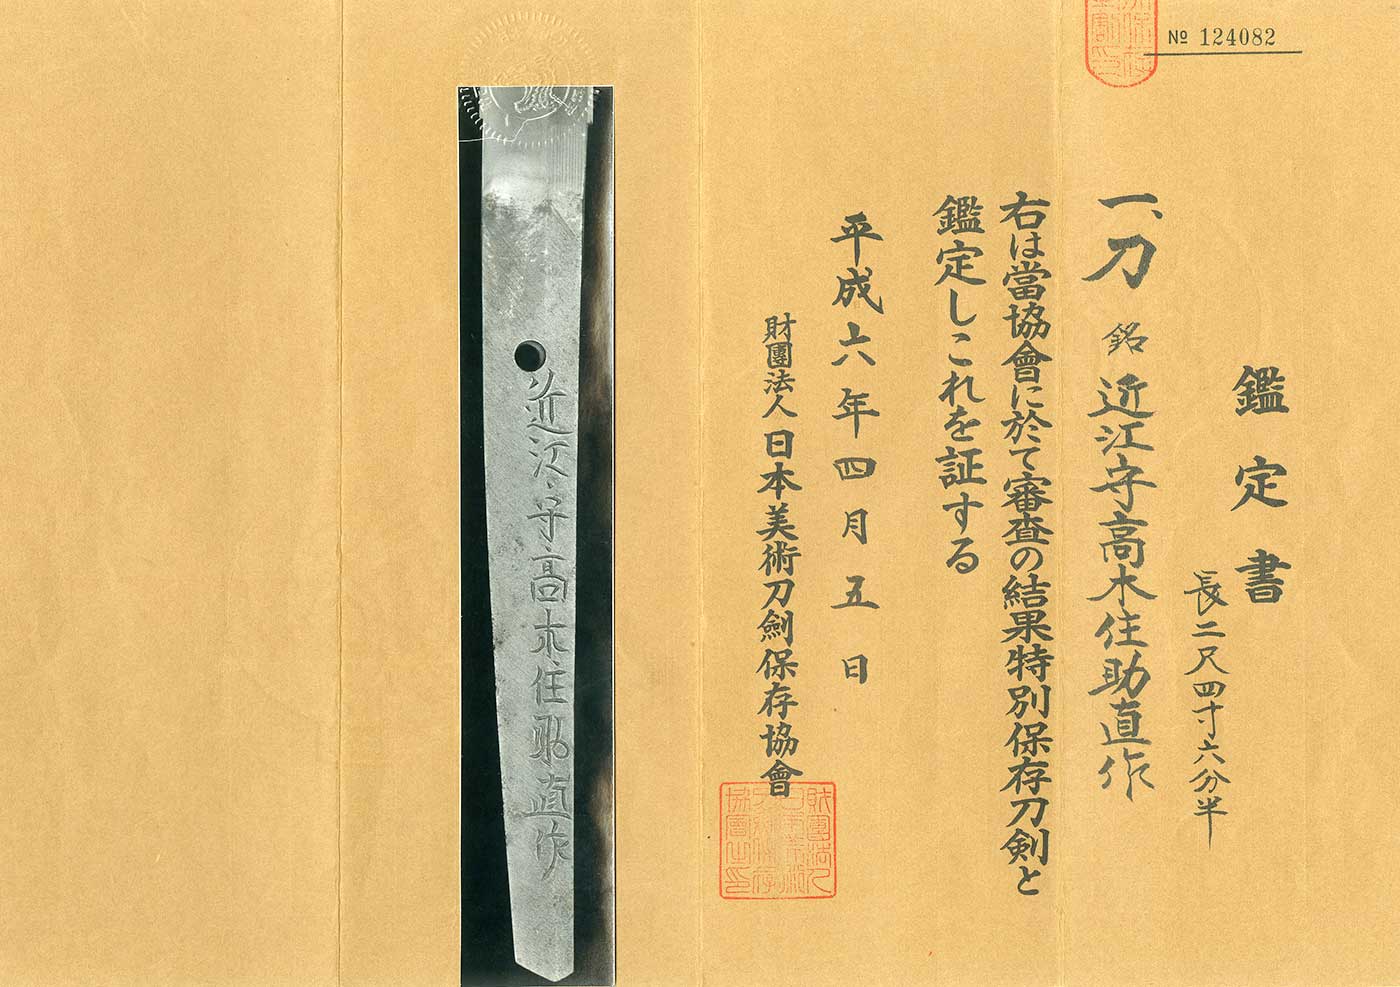 № 124082
鑑定書
長二尺四寸六分半
一、刀 銘 近江守高木住助直作
右は當協會に於て審査の結果特別保存刀剣と
鑑定しこれを証する
平成六年四月五日
財團法人日本美術刀劍保存協會
近江守高木住助直作